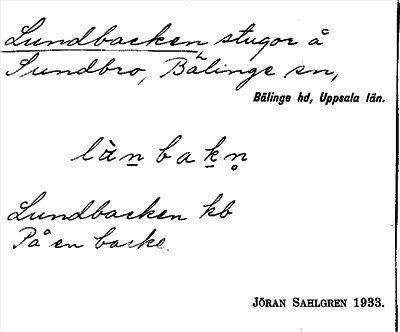 Lundbacken, stugor å
Sundbro, Bälinge sn,
Bälinge hd, Uppsala län.
làn bakn̥
Lundbacken kb
På en backe.
JÖRAN SAHLGREN 1933.